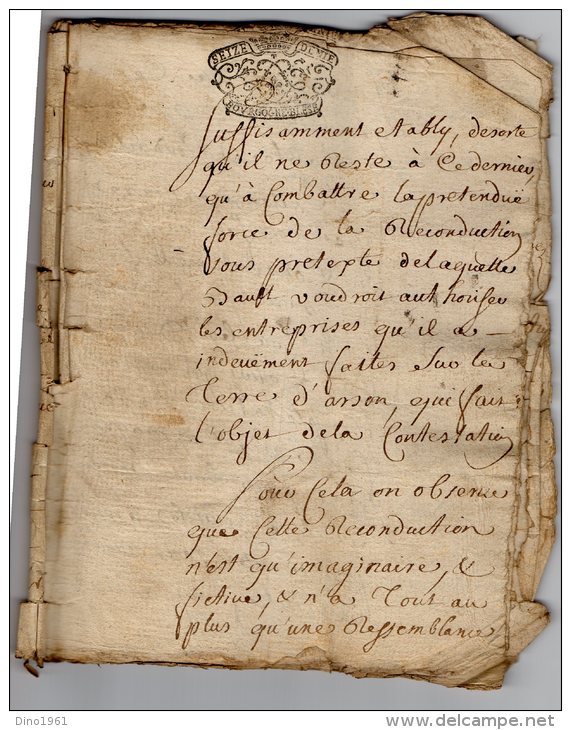 SEIZE DENIE
BOVRGOGNE BRESSE
suffisamment etably, desorte
qu'il ne Reste à Ce dernier
qu'à Combattre la pretendüe
force de la Reconduction
sous pretexte de laquelle
voudroit authoriser
les entreprises qu'il a
indeuëment faites sur la
Terre d'arson, qui fait
l'objet de la Contestation
Pour Cela on observe
que Cette Reconduction
n'est qu'imaginaire, &
fictive, & n'a Tout au
plus qu'une Ressemblance
Dino1961
delcampe.net